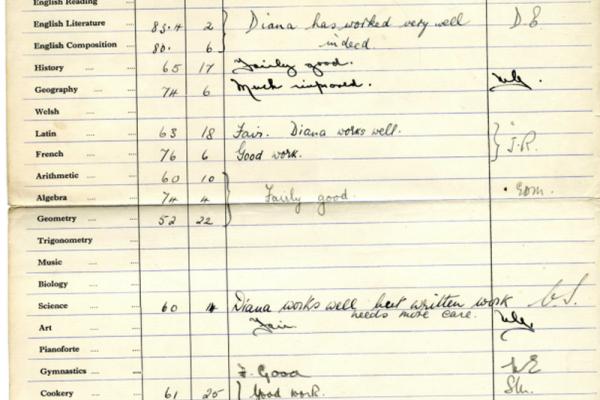 English Reading
English Literature .... 83.4 2 Diana has worked very well D.E
English Composition .... 80. 6 indeed
History .... .... 65 17 Fairly good.
Geography .... .... 74 6 Much improved.
Welsh .... ....
Latin .... .... 63 18 Fair. Diana works well. J.R.
French .... .... 76 6 Good work.
Arithmetic .... .... 60 10
Algebra .... .... 74 4 Fairly good. EOM.
Geometry .... .... 52 22
Trigonometry ....
Music .... ....
Biology .... ....
Science .... .... 60 Diana works well but written work
needs more care.
Art .... .... Fair
Pianoforte .... ....
Gymnastics .... .... F. Good
Cookery .... .... 61 25 Good work.